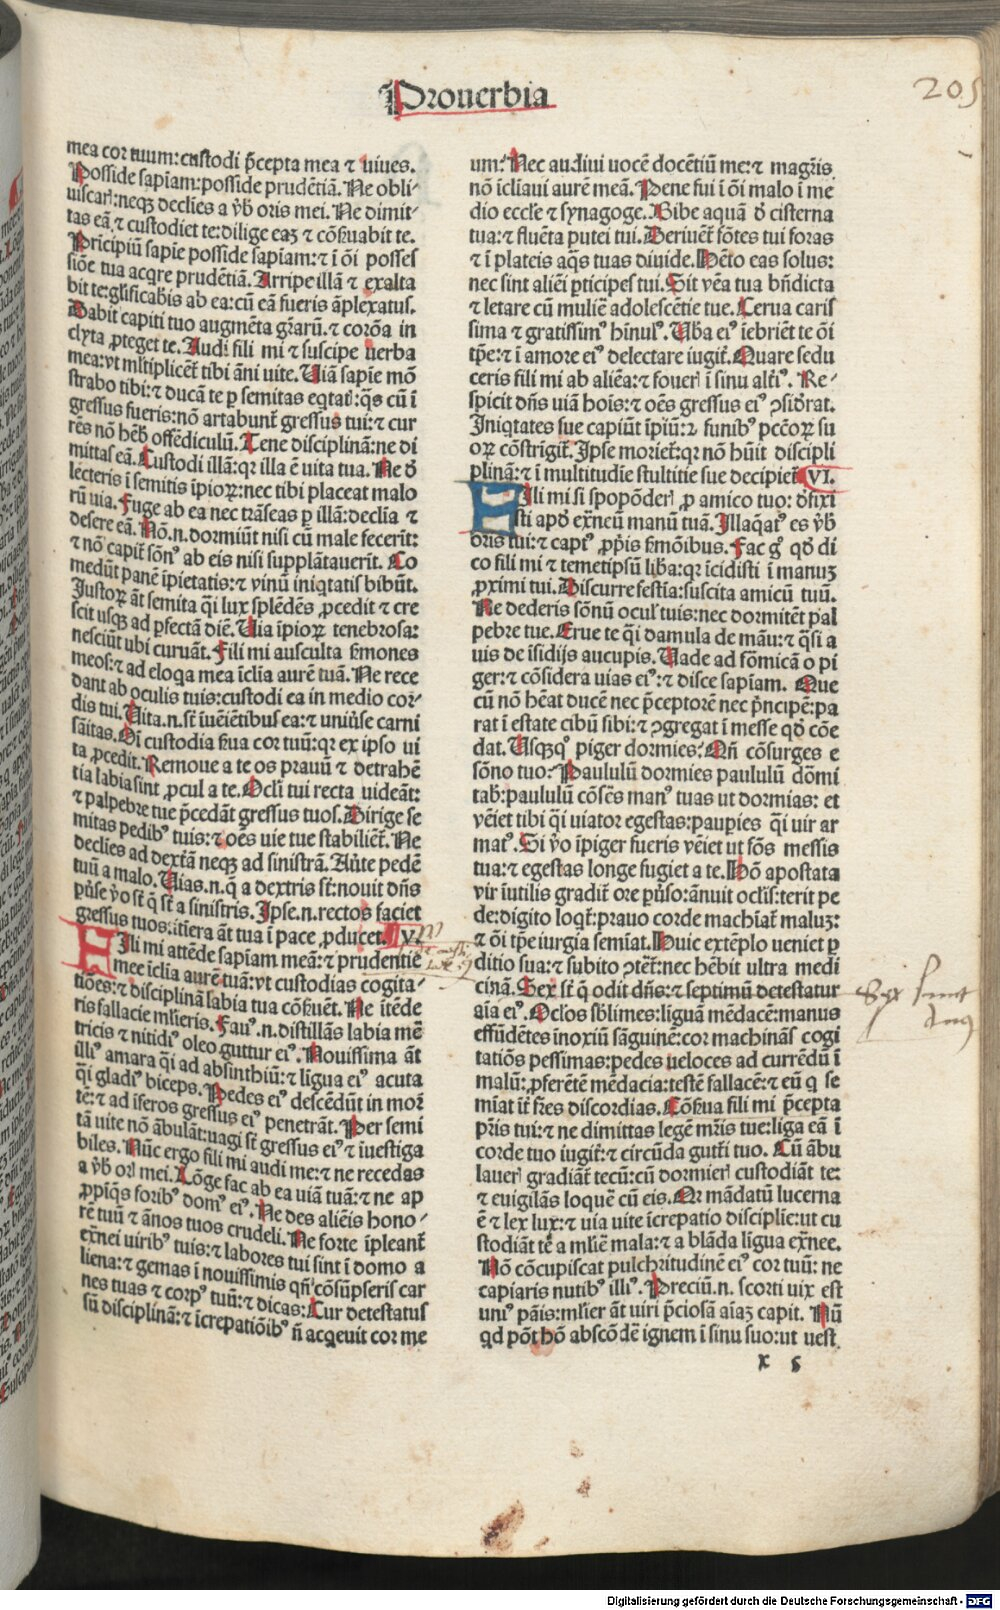 Prouerbia
205
mea cor tuum: custodi p̄cepta mea ⁊ viues.
Posside sapiam: posside prudētiā. Ne obli⸗
uiscar̄: neqȝ declies a v̄b oris mei. Ne dimit⸗
tas eā ⁊ custodiet te: dilige eaȝ ⁊ cōẜuabit te.
Pricipiū sapie posside sapiam: ⁊ ī ōi posses
siōe tua acq̄re prudētiā. Arripe illā ⁊ exalta
bit te: gl̄ificabis̄ ab ea: cū eā fueris āplexatus.
Dabit capiti tuo augmēta gr̄arū. ⁊ corōa in
clyta ꝓteget te. Audi fili mi ⁊ suscipe verba
mea: vt ml̄tiplicēt tibi āni vite. Uiā sapie mō
strabo tibi: ⁊ ducā te ꝑ semitas eq̄tat̄: q̄s cū ī
gressus fueris: nō artabunt̄ gressus tui: ⁊ cur
rēs nō hēb̄ offēdiculū. Tene disciplinā: ne di
mittas eā. Custodi illā: qr illa ē vita tua. Ne đ
lecteris ī semitis īpioꝝ: nec tibi placeat malo
rū via. Fuge ab ea nec trāseas ꝑ illā: declīa ⁊
desere eā. Nō .n. dormiūt nisi cū male fecerīt:
⁊ nō capit̄ sōn⁹ ab eis nisi supplātauerīt. Co
medūt panē īpietatis: ⁊ vinū iniq̄tatis bibūt.
Justoꝝ āt semita q̄i lux splēdēs ꝓcedit ⁊ cre
scit usqȝ ad ꝑfectā diē. Uia īpioꝝ tenebrosa:
nesciūt ubi curuāt. Fili mi ausculta ẜmones
meos: ⁊ ad eloq̄a mea īclīa aurē tuā. Ne rece
dant ab oculis tuis: custodi ea in medio cor⸗
dis tui. Uita .n. st̄ īueīetibus ea: ⁊ uniūse carni
sāitas. Oī custodia ẜua cor tuū: qr ex ipso ui
ta ꝓcedit. Remoue a te os prauū ⁊ detrahē
tia labia sint ꝓcul a te. Ocl̄i tui recta uideāt:
⁊ palpebre tue p̄cedāt gressus tuos. Dirige se
mitas pedib⁹ tuis: ⁊ oēs uie tue stabiliēt̄. Ne
declies ad dextā neqȝ ad sinistrā. Aūte pedē
tuū a malo. Uias .n. q̄ a dextris st̄: nouit dn̄s
pūse v̄o st̄ q̄ st̄ a sinistris. Ipse .n. rectos faciet
gressus tuos: itīera āt tua ī pace ꝓducet. V.
Fili mi attēde sapiam meā: ⁊ prudentie
mee īclīa aurē tuā: vt custodias cogita⸗
tiōes: ⁊ disciplinā labia tua cōẜuēt. Ne ītēde
ris fallacie ml̄ieris. Fau⁹ .n. distillās labia mē
tricis ⁊ nitidi⁹ oleo guttur ei⁹. Nouissima āt
illi⁹ amara q̄i ad absinthiū: ⁊ līgua ei⁹ acuta
q̄i gladi⁹ biceps. Pedes ei⁹ descēdūt in mor̄
tē: ⁊ ad īferos gressus ei⁹ penetrāt. Per semi
tā uite nō ābulāt: uagi st̄ gressus ei⁹ ⁊ īuestiga
biles. Nūc ergo fili mi audi me: ⁊ ne recedas
a v̄b or̄ mei. Lōge fac ab ea uiā tuā: ⁊ ne ap
ꝓpiq̄s forib⁹ dom⁹ ei⁹. Ne des aliēis hono⸗
rē tuū ⁊ ānos tuos crudeli. Ne forte īpleant̄
ex̄nei uirib⁹ tuis: ⁊ labores tui sint ī domo a
liena: ⁊ gemas ī nouissimis qn̄ cōsūpseris car
nes tuas ⁊ corp⁹ tuū: ⁊ dicas: Cur detestatus
sū disciplinā: ⁊ īcrepatiōib⁹ n̄ acq̄euit cor me
um: Nec audiui uocē docētiū me: ⁊ magr̄is
nō īcliaui aurē meā. Pene fui ī ōi malo ī me
dio eccl̄e ⁊ synagoge. Bibe aquā đ cisterna
tua: ⁊ fluēta putei tui. Deriuēt̄ fōtes tui foras
⁊ ī plateis aq̄s tuas diuide. Hēto eas solus:
nec sint aliēi ꝑticipes tui. Sit vēa tua bn̄dicta
⁊ letare cū muliē adolescētie tue. Cerua caris
sima ⁊ gratissim⁹ hīnul⁹. Ub̄a ei⁹ īebriēt te ōi
tp̄e: ⁊ ī amore ei⁹ delectare iugit̄. Quare sedu
ceris fili mi ab aliēa: ⁊ fouer̄ ī sinu alt̄i⁹. Re⸗
spicit dn̄s uiā hoīs: ⁊ oēs gressus ei⁹ ꝯsiđrat.
Iniq̄tates sue capiūt īpiū: ⁊ funib⁹ pc̄oꝝ su
oꝝ cōstrīgit̄. Ipse moriet̄: qr nō hūit discipli
plinā: ⁊ ī multitudīe stultitie sue decipiet̄ VI.
Fili mi si spopōder̄ ꝓ amico tuo: đfixi
sti apđ ex̄neū manū tuā. Illaq̄at⁹ es v̄b
oris tui: ⁊ capt⁹ ꝓp̄is ẜmōibus. Fac g⁰ qđ di
co fili mi ⁊ temetipsū lib̄a: qr īcidisti ī manuȝ
ꝓximi tui. Discurre festīa: suscita amicū tuū.
Ne dederis sōnū ocul̄ tuis: nec dormitēt pal
pebre tue. Erue te q̄i damula de māu: ⁊ q̄si a
uis de īsidijs aucupis. Uade ad fōmicā o pi
ger: ⁊ cōsidera uias ei⁹: ⁊ disce sapīam. Que
cū nō hēat ducē nec p̄ceptorē nec p̄ncipē: pa
rat ī estate cibū sibi: ⁊ ꝯgregat ī messe qđ cōe
dat. Usqȝq⁰ piger dormies: Qn̄ cōsurges e
sōno tuo: Paululū dormies paululū dōmi
tab̄: paululū cōses̄ man⁹ tuas ut dormias: et
vēiet tibi q̄i uiator egestas: paupies q̄i uir ar
mat⁹. Si v̄o īpiger fueris vēiet ut fōs messis
tua: ⁊ egestas longe fugiet a te. Hō apostata
vir īutilis gradit̄ ore pūso: ānuit ocl̄is: terit pe
de: digito loqt̄: prauo corde machīat̄ maluȝ:
⁊ ōi tp̄e iurgia semīat. Huic extēplo ueniet ꝑ
ditio sua: ⁊ subito ꝯtēt̄: nec hēbit ultra medi
cinā. Sex st̄ q̄ odit dn̄s: ⁊ septimū detestatur
aīa ei⁹. Oclos sb̄limes: liguā mēdacē: manus
effūdētes inoxiū sāguinē: cor machināſ cogi
tatiōs pessimas: pedes ueloces ad currēdū ī
malū: ꝓferētē mēdacia: testē fallacē: ⁊ eū q̄ se
mīat īt̄ fr̄es discordias. Cōẜua fili mi p̄cepta
pr̄is tui: ⁊ ne dimittas legē mr̄is tue: liga eā ī
corde tuo iugit̄: ⁊ circūda gutt̄i tuo. Cū ābu
lauer̄ gradiāt̄ tecū: cū dormier̄ custodiāt te:
⁊ euigilās loquē cū eis. Qr mādatū lucerna
ē ⁊ lex lux: ⁊ uia uite īcrepatio disciplīe: ut cu
stodiāt tē a ml̄iē mala: ⁊ a blāda ligua ex̄nee.
Nō cōcupiscat pulchritudinē ei⁹ cor tuū: ne
capiaris nutib⁹ illi⁹. Preciū .n. scorti uix est
uni⁹ pāis: ml̄ier āt uiri p̄ciosā aīaȝ capit. Nū
qd pōt hō abscōdē ignem ī sinu suo: ut uest
x 5
Sex sunt
Digitalisierung gefördert durch die Deutsche Forschungsgemeinschaft - DFG